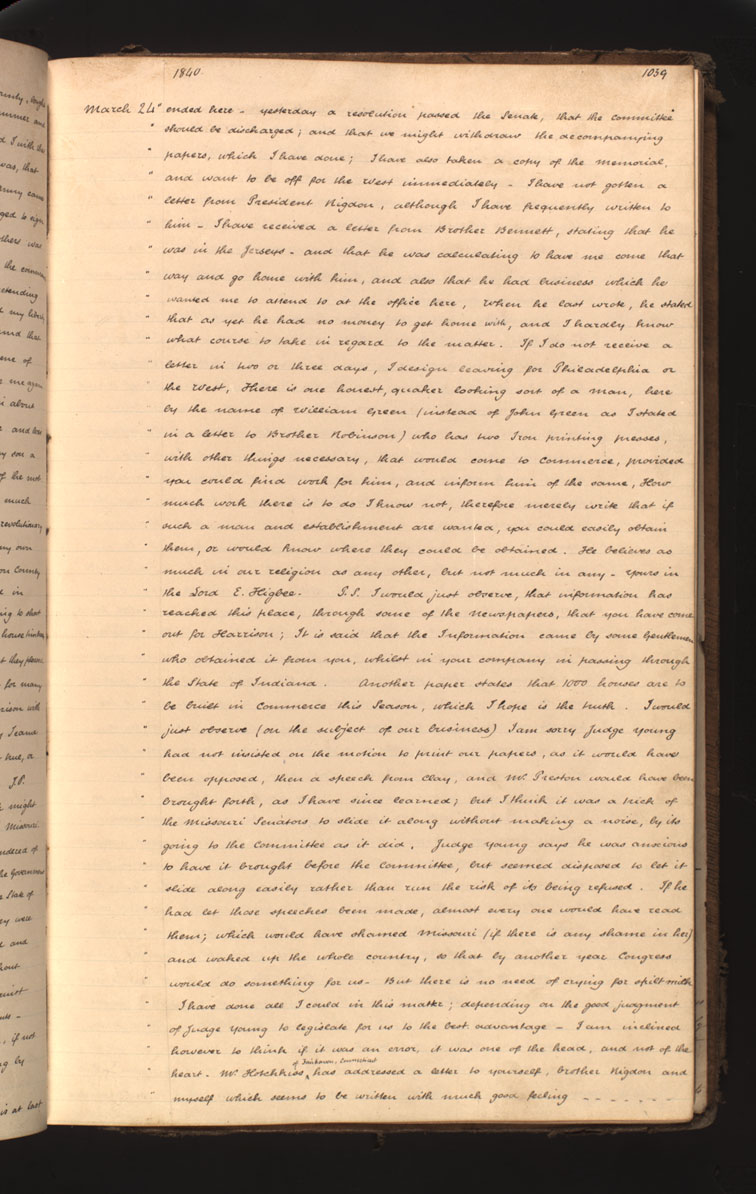 1840 1039
March 24" ended here – yesterday a resolution passed the Senate, that the committee
" should be discharged; and that we might withdraw the accompanying
" papers, which I have done; I have also taken a copy of the memorial,
" and want to be off for the West immediately – I have not gotten a
" letter from President Rigdon, although I have frequently written to
" him – I have received a letter from Brother Bennett, stating that he
" was in the Jerseys – and that he was calculating to have me come that
" way and go home with him, and also that he had business which he
" wanted me to attend to at the office here, When he last wrote, he stated
" that as yet he had no money to get home with, and I hardly know
" what course to take in regard to the matter. If I do not receive a
" letter in two or three days, I design leaving for Philadelphia or
" the West, There is one honest, quaker looking sort of a man, here
" by the name of William Green (instead of John Green as I stated
" in a letter to Brother Robinson) who has two Iron printing presses,
" with other things necessary, that would come to Commerce, provided
" you could find work for him, and inform him of the same, How
" much work there is to do I know not, therefore merely write that if
" such a man and establishment are wanted, you could easily obtain
" them, or would know where they could be obtained. He believes as
" much in our religion as any other, but not much in any – Yours in
" the Lord E. Higbee. P.S. I would just observe, that information has
" reached this place, through some of the Newspapers, that you have come
" out for Harrison; It is said that the Information came by some Gentlemen
" who obtained it from you, whilst in your company in passing through
" the State of Indiana. Another paper states that 1000 houses are to
" be built in Commerce this Season, which I hope is the truth. I would
" just observe (on the subject of our business) I am sorry Judge Young
" had not insisted on the motion to print our papers, as it would have
" been opposed, then a speech from Clay, and Mr. Preston would have been
" brought forth, as I have since learned; but I think it was a trick of
" the Missouri Senators to slide it along without making a noise, by its
" going to the Committee as it did. Judge Young says he was anxious
" to have it brought before the Committee, but seemed disposed to let it
" slide along easily rather than run the risk of its being refused. If he
" had let those speeches been made, almost every one would have read
" them; which would have shamed Missouri (if there is any shame in her)
" and waked up the whole country, so that by another year Congress
" would do something for us – But there is no need of crying for spilt milk
" I have done all I could in this matter; depending on the good judgment
" of Judge Young to legislate for us to the best advantage – I am inclined
" however to think if it was an error, it was one of the head, and not of the
of Fairhaven, Connecticut
" heart. Mr Hotchkiss ‸ has addressed a letter to yourself, brother Rigdon and
" myself which seems to be written with much good feeling – – – – – – –